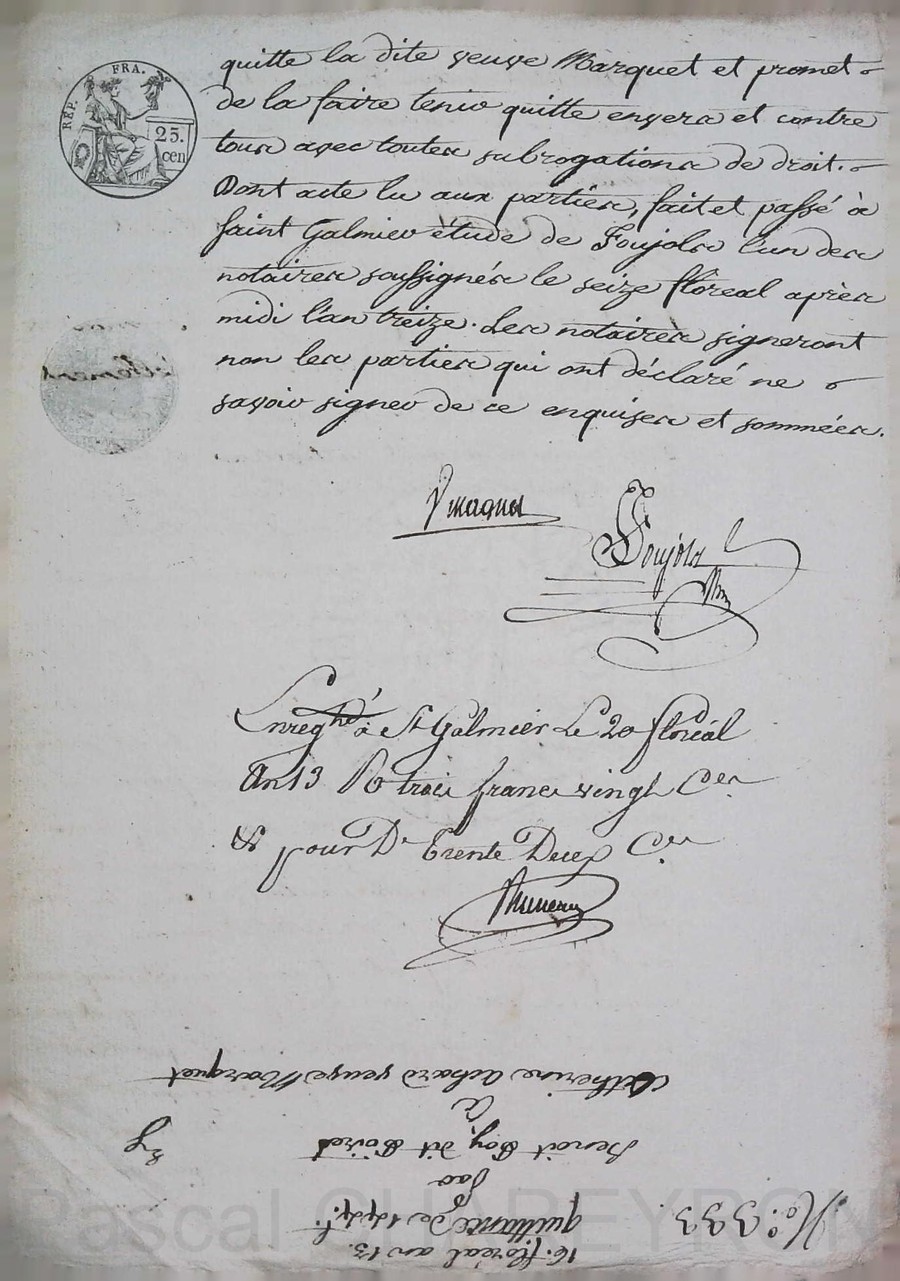 RÉP. FRA.
25.
cen
quitte la dite veuve Marquet et promet
de la faire tenir quitte envers et contre
tous avec toutes subrogations de droit.
Dont acte lu aux parties, fait et passé à
saint Galmier étude de Foujols l'un des
notaires soussignés le seize floreal après
midi l'an treize. Les notaires signeront
non les parties qui ont déclaré ne
savoir signer de ce enquises et sommées.
Foujols
Enregtré à St Galmier Le 20 floréal
An 13 R trois francs vingt Ces
& pour De trente Deux Ces
16. floréal an 13.
quittance de 144.
N.o: 333.
par
Benoit
dit
à
Catherine Achard veuve Marquet
Pascal CHAREYRON